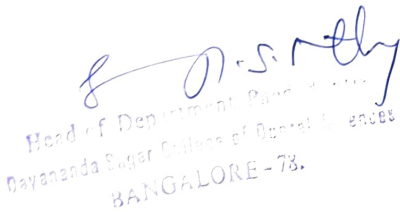 Head of Department
Dayananda Sagar College of Dental Sciences
BANGALORE - 78.